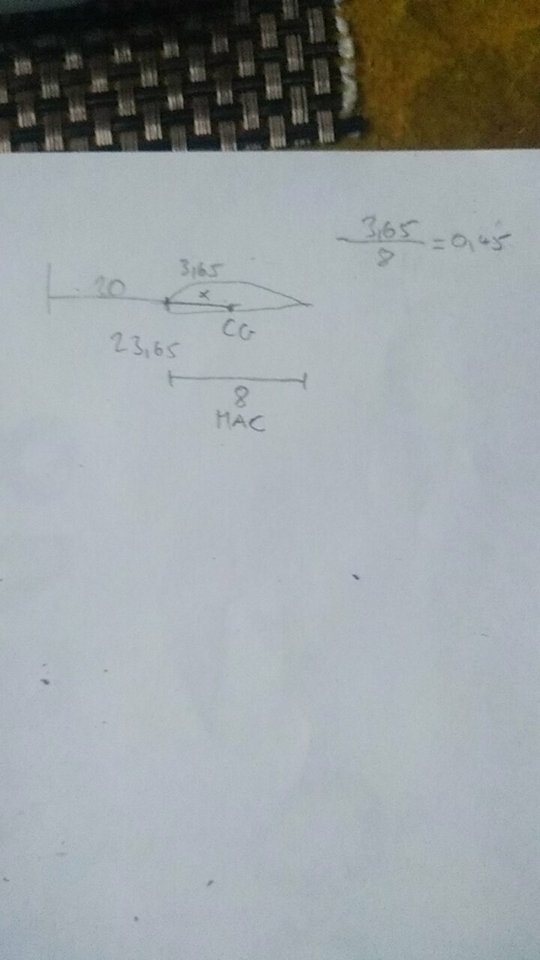 3,65
8
= 0,45
3,65
20
x
CG
23,65
8
MAC